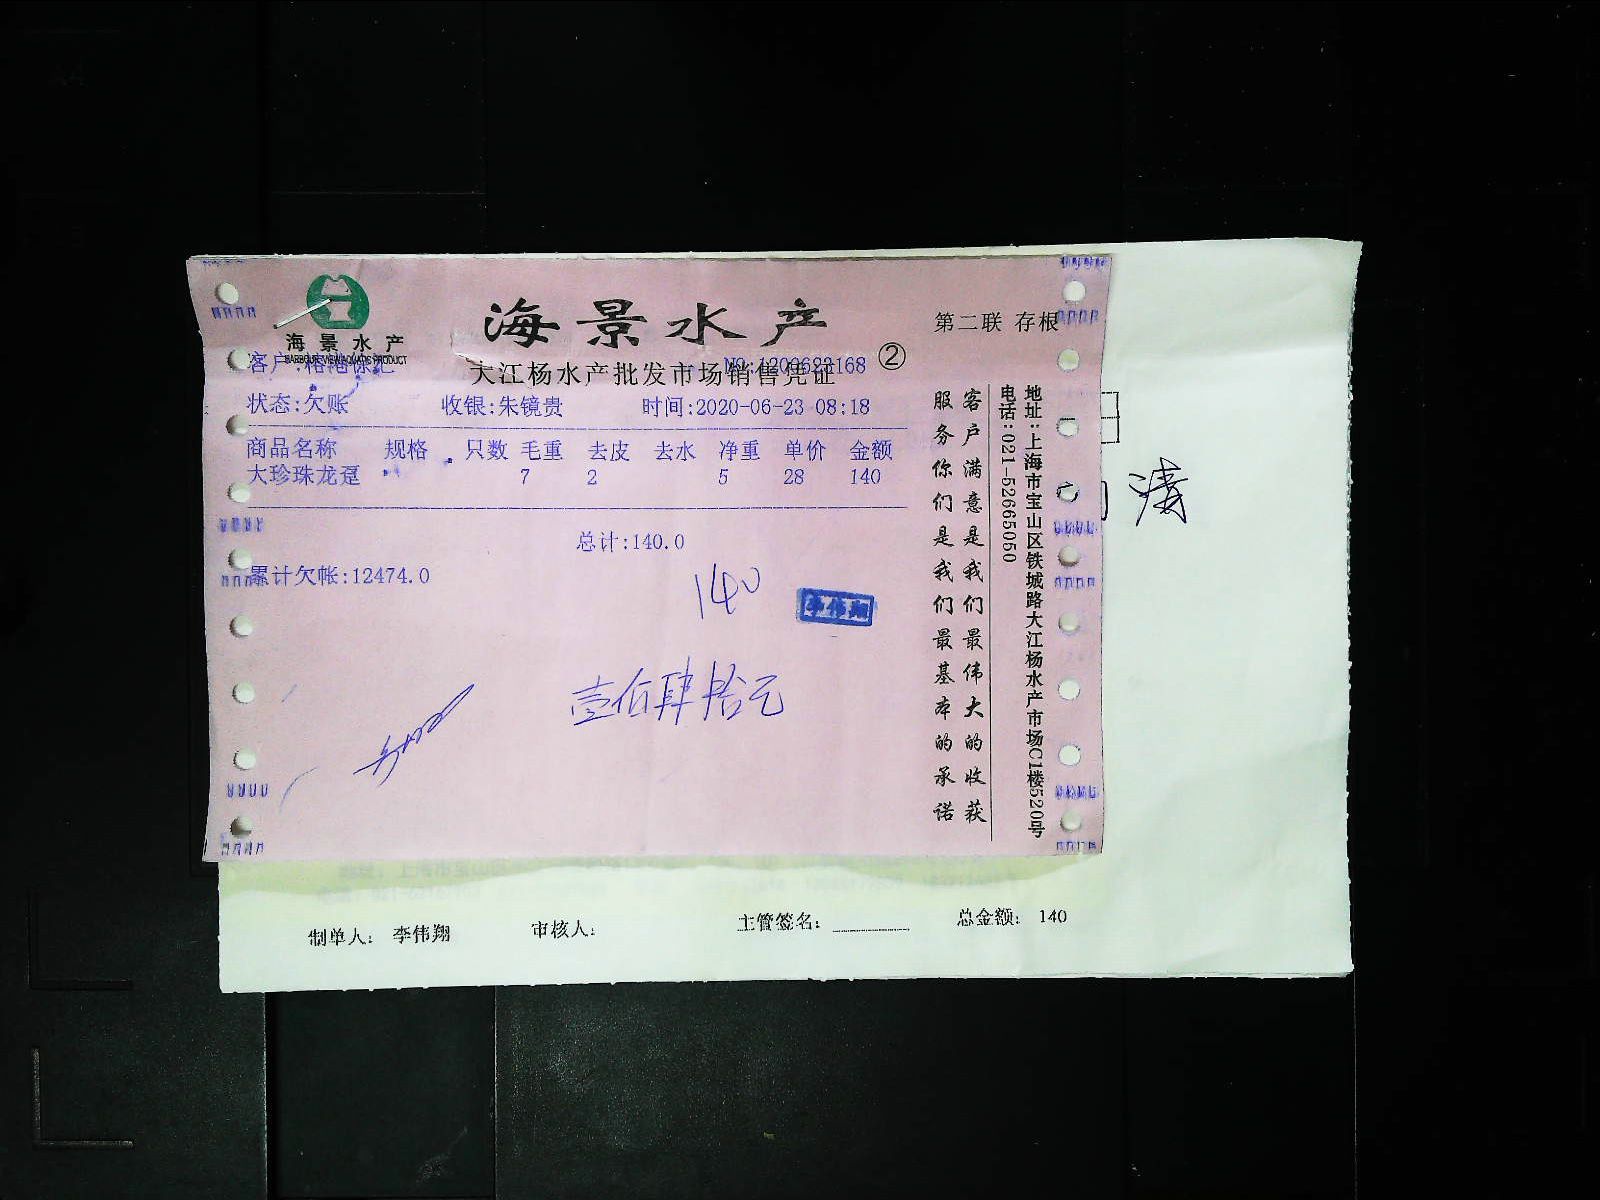 海景水产
HARBOUR VIEW AQUATIC PRODUCT
海景水产
第二联 存根
大江杨水产批发市场销售凭证
②
NO:1200623168
客户:
状态:欠账 收银:朱镜贵 时间:2020-06-23 08:18
商品名称 规格 只数 毛重 去皮 去水 净重 单价 金额
大珍珠龙趸 7 2 5 28 140
总计:140.0
累计欠帐:12474.0
140
李伟翔
壹佰肆拾元
客户满意是我们最伟大的收获
服务你们是我们最基本的承诺
地址:上海市宝山区铁城路大江杨水产市场C1楼520号
电话:021-52665050
制单人: 李伟翔 审核人: 主管签名: 总金额: 140